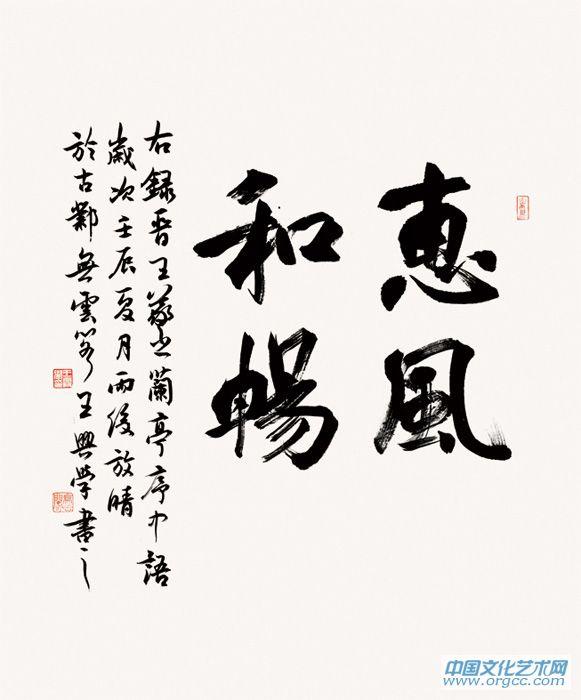 惠風
和暢
右錄晋王羲之蘭亭序中語
歲次壬辰夏月雨後放晴
於古鄴無雲軒王興学書之
中国文化艺术网
www.orgcc.com